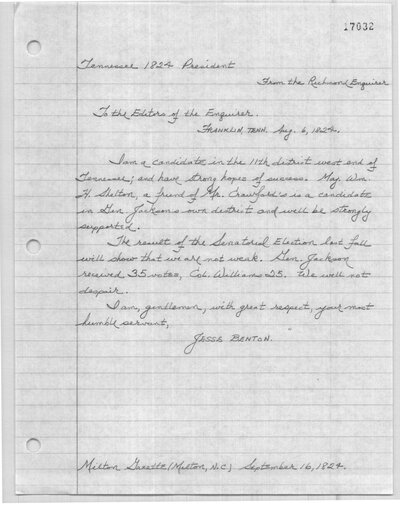 17032
Tennessee 1824 President
From the Richmond Enquirer
To the Editors of the Enquirer.
FRANKLIN, TENN. Aug. 6, 1824.
I am a candidate in the 11th district west end of
Tennessee; and have strong hopes of success. Maj. Wm.
H. Shelton, a friend of Mr. Crawford's is a candidate
in Gen Jackson's own district and will be strongly
supported.
The result of the Senatorial Election last fall
will show that we are not weak. Gen. Jackson
received 35 votes, Col. Williams 25. We will not
despair.
I am, gentlemen, with great respect, your most
humble servant,
JESSE BENTON.
Milton Gazette (Milton, N.C.) September 16, 1824.